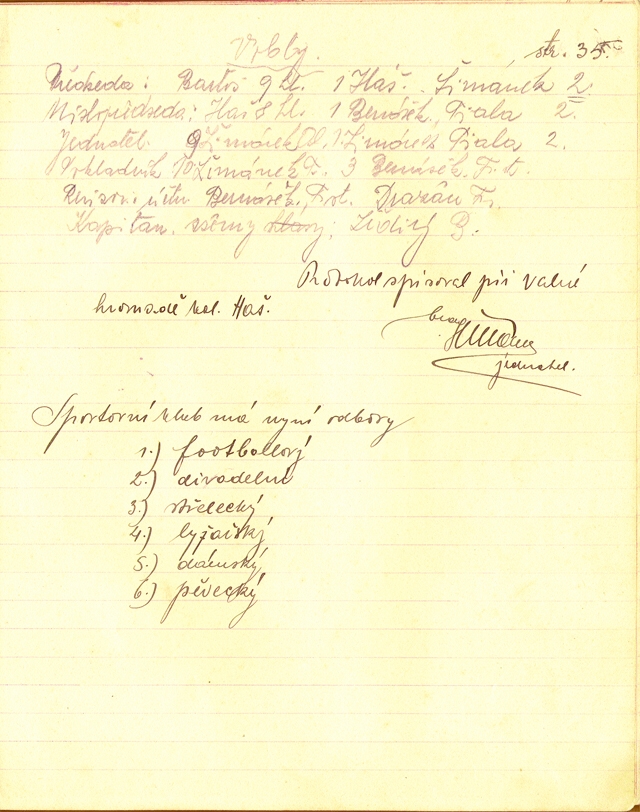 Volby. str. 35.
Předseda: Bartoš 9 hl. 1 Haš. Šimánek 2.
Místopředseda: Haš 8 hl. 1 Benášek, Fiala 2.
Jednatel. 9 Šimánek 1 Šimánek Fiala 2.
Pokladník 10 Šimánek F. 3 Benášek. Frt.
Revisoři účtu Benášek, Frt. Dražan Fr.
Kapitán. černý hlasy; Židický B.
Protokol spisoval při Valné
hromadě kol. Haš.
jednatel.
Sportovní klub má nyní odbory
1.) footbollový
2.) divadelní
3.) střelecký
4.) lyžařský
5.) dámský
6.) pěvecký